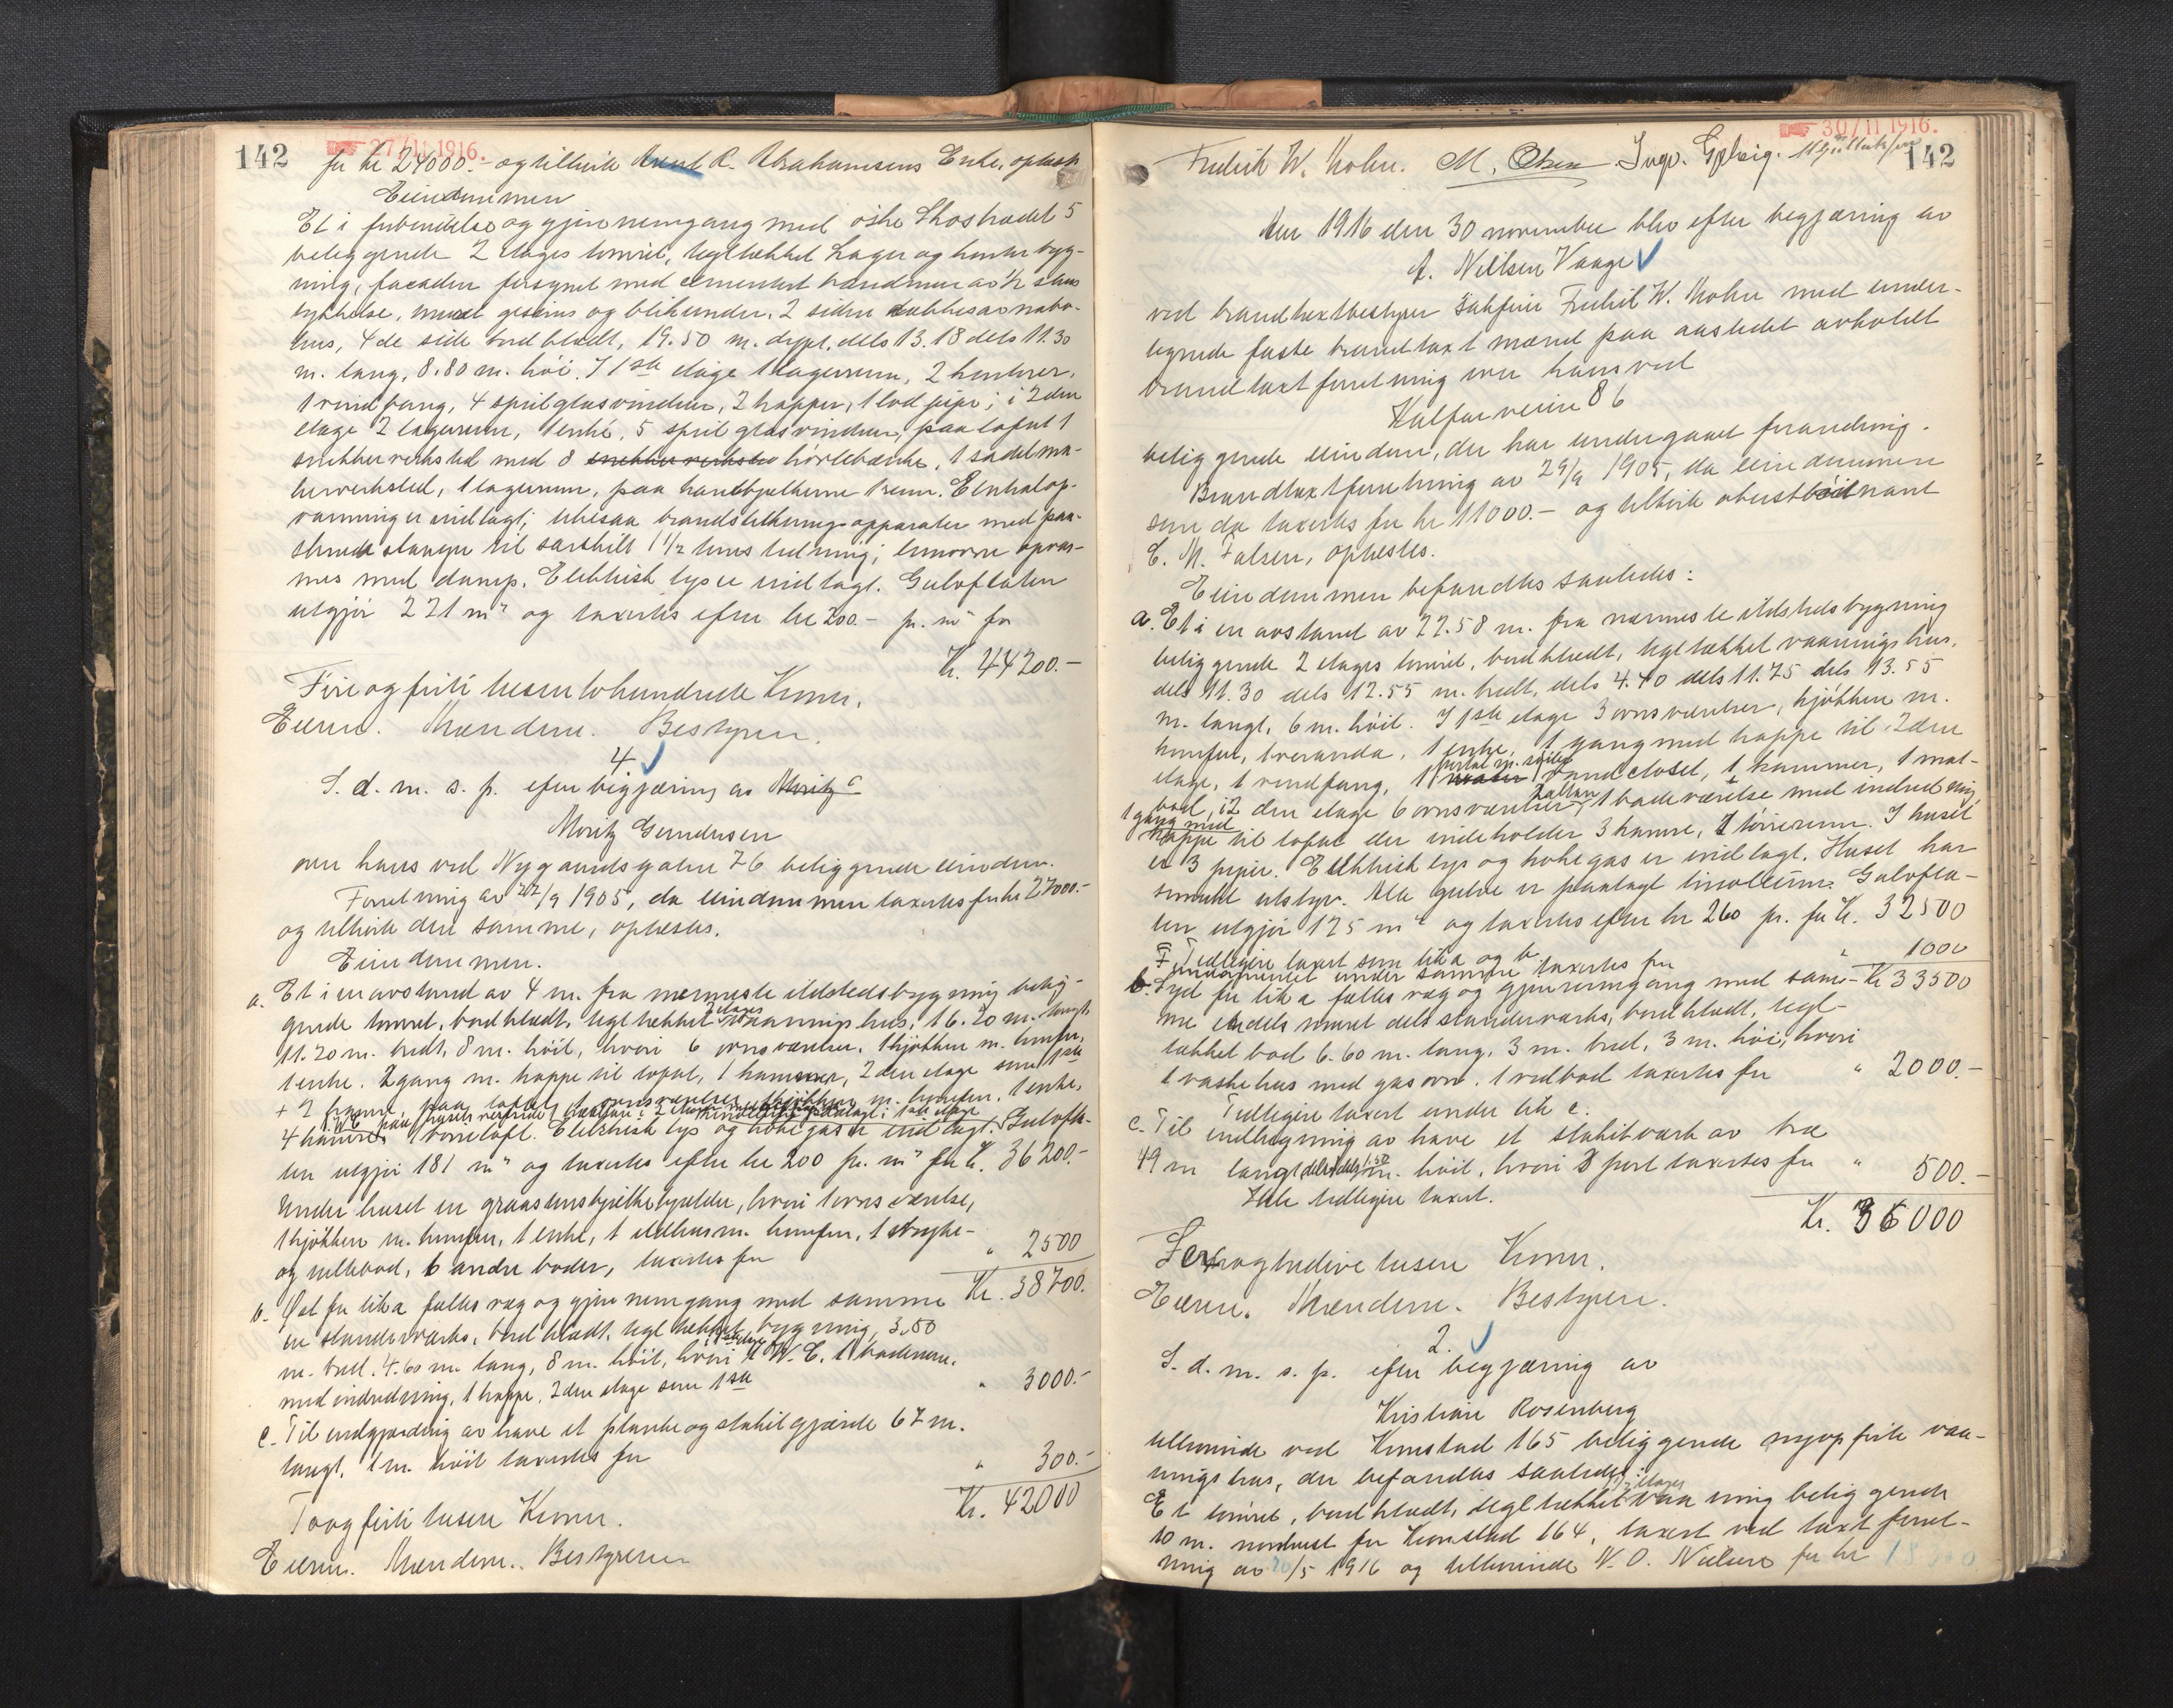 142
27/11 1916.
for kr 24000.- og tilhørte Arent R. Abrahamsens Enke, ophæves
Eiendommen
Et i forbindelse og gjennemgang med østre Skostrædet 5
beliggende 2 etages tømret, tegltækket Lager og kontorbyg-
ning, facaden forsynet med cementert brandmur av 1/2 stens
tykkelse, muret gesims og blikunder. 2 sider dækkes av nabo-
hus, 4de side bordklædt, 19.50 m. dypt, dels 13.18 dels 11.30
m. lang, 8.80 m. høi. I 1ste etage 1 lagerrum, 2 kontorer,
1 vindfang, 4 speilglasvinduer, 2 trapper, 1 lod pipe; i 2den
etage 2 lagerrum, 1 entré, 5 speilglasvinduer, paa loftet 1
snekkerverksted med 8 snekkerverksted høvlebænke, 1 sadelma-
kerverksted, 1 lagerrum, paa hanebjelkerne 1 rum. Centralop-
varmning er indlagt; likesaa brandslukningsapparater med paa-
skruede slanger til særskilt 1 1/2 toms ledning; limovne opvar-
mes med damp. Elektrisk lys er indlagt. Gulvflaten
utgjør 221 m² og taxertes efter kr 200.- pr. m² for
Kr. 44200.-
Fire og førti tusen tohundrede Kroner.
Eieren. Mændene. Bestyreren.
4
S. d. m. s. p. efter begjæring av Moritz G
Moritz Gundersen
over hans ved Nygaardsgaten 76 beliggende eiendom.
Forretning av 22/9 1905, da eiendommen taxertes for kr 27000.-
og tilhørte den samme, ophæves.
Eiendommen.
a. Et i en avstand av 4 m. fra nærmeste ildstedsbygning belig-
gende tømret, bordklædt, tegltækket 2 etages vaaningshus, 16.20 m. langt,
11.20 m. bredt, 8 m. høit, hvori 6 ovnsværelser, 1 kjøkken m. komfur,
1 entre. 2 gang m. trappe til loftet, 1 kammer, 2den etage som 1ste
4 kamre, 1 tørreloft. Elektrisk lys og kokegas er indlagt. Gulvfla-
ten utgjør 181 m² og taxertes efter kr 200 pr. m² for Kr. 36200.-
Under huset en graastenskjelkekjelder, hvori 1 ovnsværelse,
1 kjøkken m. komfur, 1 entré, 1 ildhus m. komfur, 1 stryke-
og rullebod, 6 andre boder, taxertes for " 2500
Kr. 38700.
b. Øst for lit a fælles væg og gjennemgang med samme
en standerværks, bordklædt, tegltækket bygning, 3.50
m. bred. 4.60 m. lang, 8 m. høit, hvori 1 W.C. 1 baderum.
med indredning, 1 trappe. 2den etage som 1ste " 3000.-
c. Til indgjærding av have et planke og stakitgjærde 67 m.
langt, 1 m. høit taxertes for " 300.-
Kr. 42000
To og førti tusen Kroner.
Eieren. Mændene. Bestyreren
30/11 1916.
142
Fredrik W. Kohn. M. Olsen Ingv. Gjelvig.
Aar 1916 den 30 november blev efter begjæring av
A. Nielsen Vaage
ved brandtaxtbestyrer Sakfører Fredrik W. Kohn med under-
tegnede faste brandtaxtmænd paa aastedet avholdt
brandtaxtforretning over hans ved
Kalfarveien 86
beliggende eiendom, der har undergaaet forandring.
Brandtaxtforretning av 29/9 1905, da eiendommen
som da taxertes for kr 11000.- og tilhørte oberstløitnant
C. M. Falsen, ophæves.
Eiendommen befandtes saaledes:
a. Et i en avstand av 22.58 m. fra nærmeste ildstedsbygning
beliggende 2 etages tømret, bordklædt, tegltækket vaaningshus,
dels 11.30 dels 12.55 m. bredt, dels 4.40 dels 11.75 dels 13.55
m. langt, 6 m. høit. I 1ste etage 3 ovnsværelser, kjøkken m.
komfur, 1 veranda, 1 entre, 1 gang med trappe til 2den
etage, 1 vindfang, 1 vandcloset, 1 kammer, 1 mat-
bod, i 2den etage 6 ovnsværelser, 1 balkon, 1 badeværelse med indredning
1 gang med
trappe til loftet der indeholder 3 kamre, 1 tørrerum. I huset
er 3 piper. Elektrisk lys og kokegas er indlagt. Huset har
smukt utstyr. Alle gulve er paalagt linoleum. Gulvfla-
ten utgjør 125 m² og taxertes efter kr 260 pr. for Kr. 32500
Tidligere taxert som lit a og b.
Fundamentet under samme taxertes for " 1000
Kr 33500
b. Syd for lit a fælles væg og gjennemgang med sam-
me en dels muret dels standerværks, bordklædt, tegl-
tækket bod 6.60 m. lang, 3 m. bred, 3 m. høi, hvori
1 vaskehus med gasovn. 1 vedbod taxertes for " 2000.-
Tidligere taxert under lit c.
c. Til indhegning av have et stakitværk av træ
49 m langt dels 1 dels 1.50 m. høit, hvori 3 port taxertes for " 500.-
Ikke tidligere taxert.
Kr. 36000
Sex og tredive tusen Kroner.
Eieren. Mændene. Bestyreren.
2.
S. d. m. s. p. efter begjæring av
Kristian Rosenberg
tilhørende ved Kronstad 165 beliggende nyopførte vaa-
ningshus, der befandtes saaledes:
Et tømret, bordklædt, tegltækket 1 1/2 etages vaaning beliggende
10 m. nordvest for Kronstad 164, taxert ved taxtforret-
ning av 20/5 1916 og tilhørende N. O. Nielsen for kr 18000